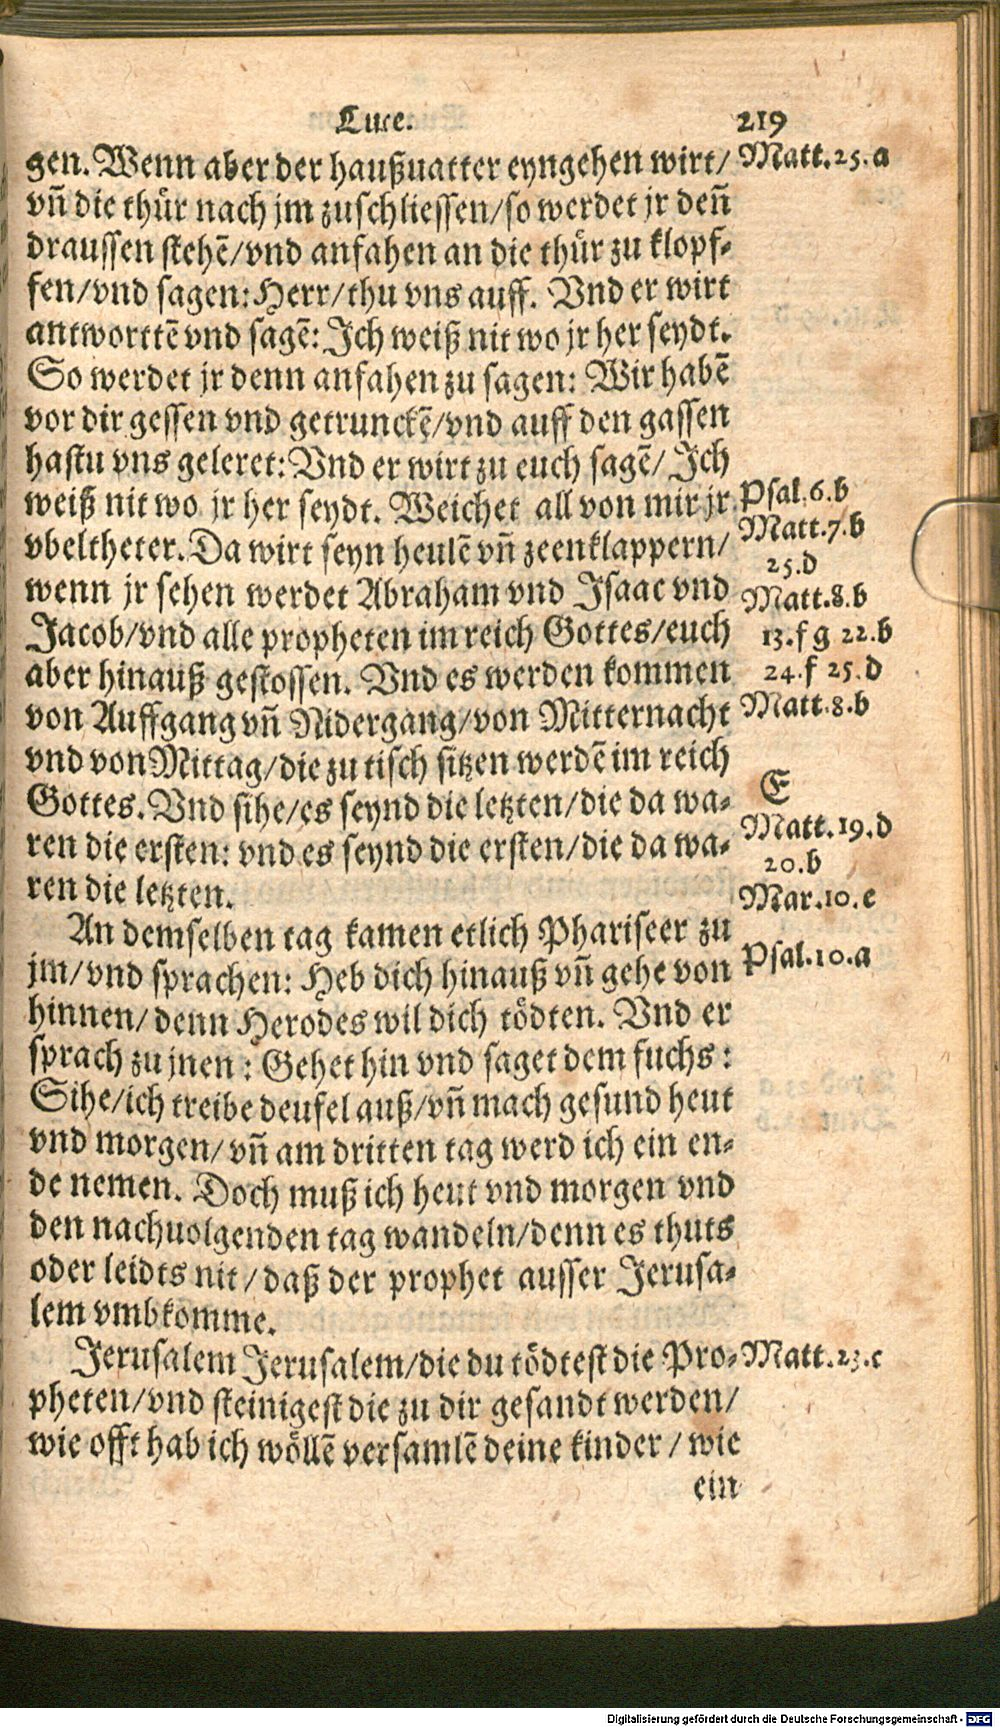 Luce.
219
gen. Wenn aber der haußuatter eyngehen wirt/
vñ die thür nach jm zuschliessen/so werdet jr deñ
draussen stehē/vnd anfahen an die thür zu klopf-
fen/vnd sagen: Herr/thu vns auff. Vnd er wirt
antworttē vnd sagē: Ich weiß nit wo jr her seydt.
So werdet jr denn anfahen zu sagen: Wir habē
vor dir gessen vnd getrunckē/vnd auff den gassen
hastu vns geleret: Vnd er wirt zu euch sagē/ Ich
weiß nit wo jr her seydt. Weichet all von mir jr
vbeltheter. Da wirt seyn heulē vñ zeenklappern/
wenn jr sehen werdet Abraham vnd Isaac vnd
Jacob/vnd alle propheten im reich Gottes/euch
aber hinauß gestossen. Vnd es werden kommen
von Auffgang vñ Nidergang/von Mitternacht
vnd von Mittag/die zu tisch sitzen werdē im reich
Gottes. Vnd sihe/es seynd die letzten/die da wa-
ren die ersten: vnd es seynd die ersten/die da wa-
ren die letzten.
An demselben tag kamen etlich Phariseer zu
jm/vnd sprachen: Heb dich hinauß vñ gehe von
hinnen/denn Herodes wil dich tödten. Vnd er
sprach zu jnen: Gehet hin vnd saget dem fuchs:
Sihe/ich treibe deufel auß/vñ mach gesund heut
vnd morgen/vñ am dritten tag werd ich ein en-
de nemen. Doch muß ich heut vnd morgen vnd
den nachuolgenden tag wandeln/denn es thuts
oder leidts nit/daß der prophet ausser Jerusa-
lem vmbkomme.
Jerusalem Jerusalem/die du tödtest die Pro-
pheten/vnd steinigest die zu dir gesandt werden/
wie offt hab ich wöllē versamlē deine kinder/wie
ein
Matt.25.a
Psal.6.b
Matt.7.b
25.d
Matt.8.b
13.f g 22.b
24.f 25.d
Matt.8.b
E
Matt.19.d
20.b
Mar.10.e
Psal.10.a
Matt.23.c
Digitalisierung gefördert durch die Deutsche Forschungsgemeinschaft - DFG